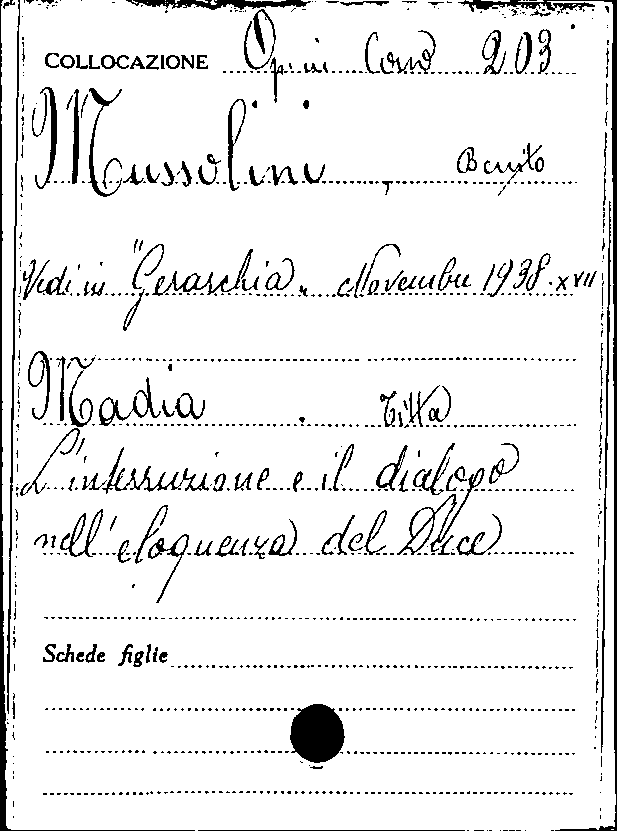 COLLOCAZIONE 203
Mussolini, Benito
Vedi in "Gerarchia" Novembre 1938.XVII
Madia. Titta
L'interruzione e il dialogo
nell'eloquenza del Duce
Schede figlie